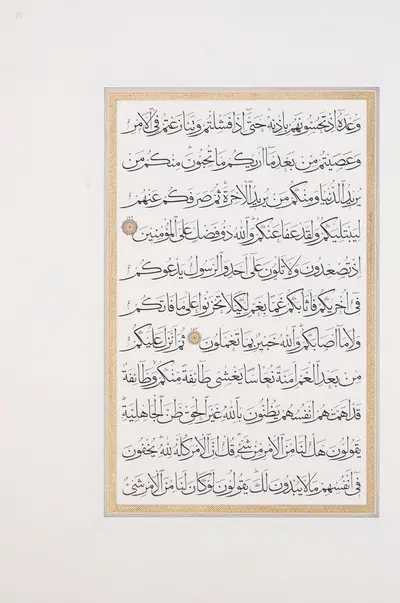 وَعْدَهُ إِذْ تَحُسُّونَهُمْ بِإِذْنِهِ حَتَّى إِذَا فَشِلْتُمْ وَتَنَازَعْتُمْ فِي الْأَمْرِ
وَعَصَيْتُمْ مِنْ بَعْدِ مَا أَرَيكُمْ مَا تُحِبُّونَ مِنْكُمْ مَنْ
يُرِيدُ الدُّنْيَا وَمِنْكُمْ مَنْ يُرِيدُ الْآخِرَةَ ثُمَّ صَرَفَكُمْ عَنْهُمْ
لِيَبْتَلِيَكُمْ وَلَقَدْ عَفَا عَنْكُمْ وَاللَّهُ ذُو فَضْلٍ عَلَى الْمُؤْمِنِينَ
إِذْ تُصْعِدُونَ وَلَا تَلْوُنَ عَلَى أَحَدٍ وَالرَّسُولُ يَدْعُوكُمْ
فِي أُخْرَيكُمْ فَأَثَابَكُمْ غَمًّا بِغَمٍّ لِكَيْلَا تَحْزَنُوا عَلَى مَا فَاتَكُمْ
وَلَا مَا أَصَابَكُمْ وَاللَّهُ خَبِيرٌ بِمَا تَعْمَلُونَ ثُمَّ أَنْزَلَ عَلَيْكُمْ
مِنْ بَعْدِ الْغَمِّ أَمَنَةً نُعَاسًا يَغْشَى طَائِفَةً مِنْكُمْ وَطَائِفَةٌ
قَدْ أَهَمَّتْهُمْ أَنْفُسُهُمْ يَظُنُّونَ بِاللَّهِ غَيْرَ الْحَقِّ ظَنَّ الْجَاهِلِيَّةِ
يَقُولُونَ هَلْ لَنَا مِنَ الْأَمْرِ مِنْ شَيْءٍ قُلْ إِنَّ الْأَمْرَ كُلَّهُ لِلَّهِ يُخْفُونَ
فِي أَنْفُسِهِمْ مَا لَا يُبْدُونَ لَكَ يَقُولُونَ لَوْ كَانَ لَنَا مِنَ الْأَمْرِ شَيْءٌ